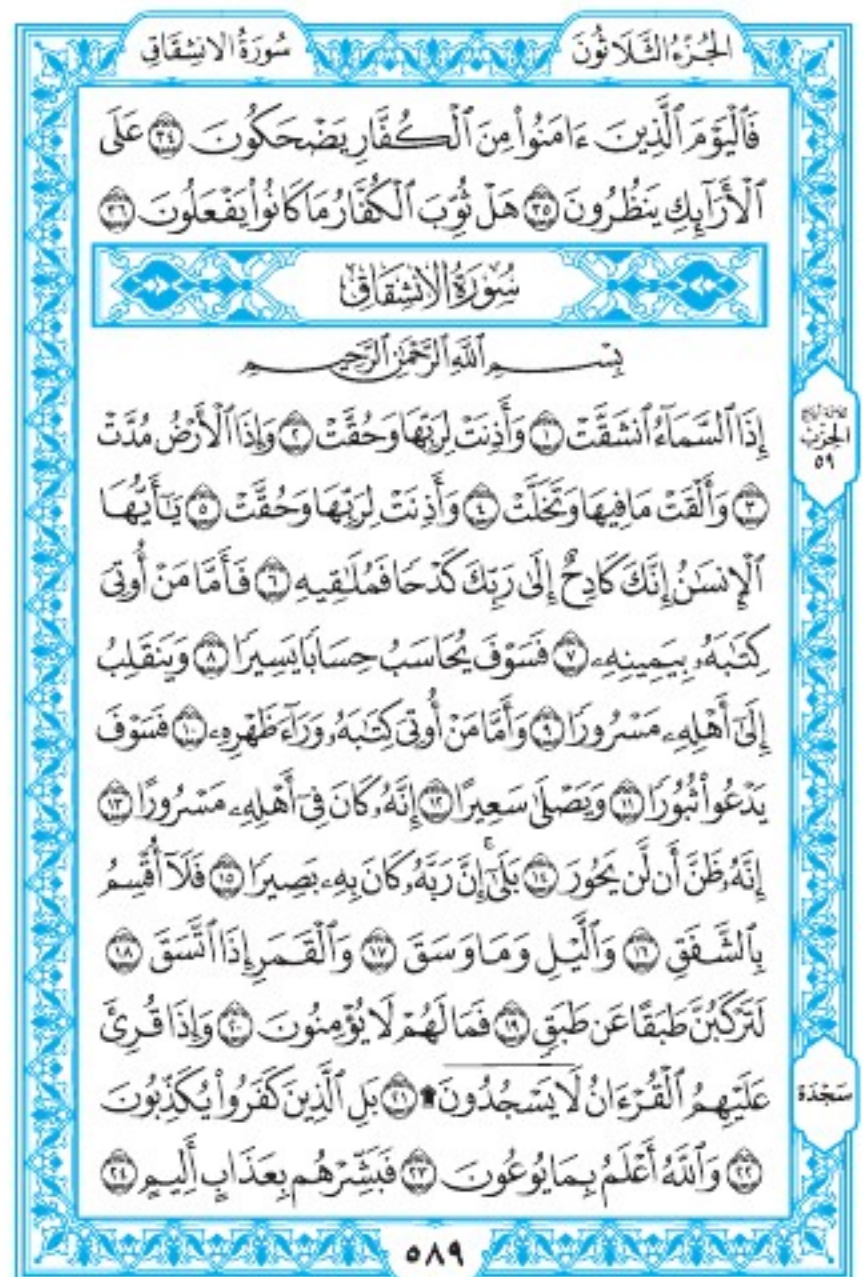 سُورَةُ الانشِقَاقِ
الجُزْءُ الثَّلَاثُونَ
فَٱلْيَوْمَ ٱلَّذِينَ ءَامَنُواْ مِنَ ٱلْكُفَّارِ يَضْحَكُونَ ٣٤ عَلَى
ٱلْأَرَآئِكِ يَنظُرُونَ ٣٥ هَلْ ثُوِّبَ ٱلْكُفَّارُ مَا كَانُواْ يَفْعَلُونَ ٣٦
سُورَةُ الانشِقَاقِ
بِسْمِ ٱللَّهِ ٱلرَّحْمَٰنِ ٱلرَّحِيمِ
إِذَا ٱلسَّمَآءُ ٱنشَقَّتْ ١ وَأَذِنَتْ لِرَبِّهَا وَحُقَّتْ ٢ وَإِذَا ٱلْأَرْضُ مُدَّتْ
٣ وَأَلْقَتْ مَا فِيهَا وَتَخَلَّتْ ٤ وَأَذِنَتْ لِرَبِّهَا وَحُقَّتْ ٥ يَٰٓأَيُّهَا
ٱلْإِنسَٰنُ إِنَّكَ كَادِحٌ إِلَىٰ رَبِّكَ كَدْحًا فَمُلَٰقِيهِ ٦ فَأَمَّا مَنْ أُوتِيَ
كِتَٰبَهُۥ بِيَمِينِهِۦ ٧ فَسَوْفَ يُحَاسَبُ حِسَابًا يَسِيرًا ٨ وَيَنقَلِبُ
إِلَىٰٓ أَهْلِهِۦ مَسْرُورًا ٩ وَأَمَّا مَنْ أُوتِيَ كِتَٰبَهُۥ وَرَآءَ ظَهْرِهِۦ ١٠ فَسَوْفَ
يَدْعُواْ ثُبُورًا ١١ وَيَصْلَىٰ سَعِيرًا ١٢ إِنَّهُۥ كَانَ فِيٓ أَهْلِهِۦ مَسْرُورًا ١٣
إِنَّهُۥ ظَنَّ أَن لَّن يَحُورَ ١٤ بَلَىٰٓۚ إِنَّ رَبَّهُۥ كَانَ بِهِۦ بَصِيرًا ١٥ فَلَآ أُقْسِمُ
بِٱلشَّفَقِ ١٦ وَٱلَّيْلِ وَمَا وَسَقَ ١٧ وَٱلْقَمَرِ إِذَا ٱتَّسَقَ ١٨
لَتَرْكَبُنَّ طَبَقًا عَن طَبَقٍ ١٩ فَمَا لَهُمْ لَا يُؤْمِنُونَ ٢٠ وَإِذَا قُرِئَ
عَلَيْهِمُ ٱلْقُرْءَانُ لَا يَسْجُدُونَ۩ ٢١ بَلِ ٱلَّذِينَ كَفَرُواْ يُكَذِّبُونَ
٢٢ وَٱللَّهُ أَعْلَمُ بِمَا يُوعُونَ ٢٣ فَبَشِّرْهُم بِعَذَابٍ أَلِيمٍ ٢٤
الحِزْبُ
٥٩
سَجْدَة
٥٨٩